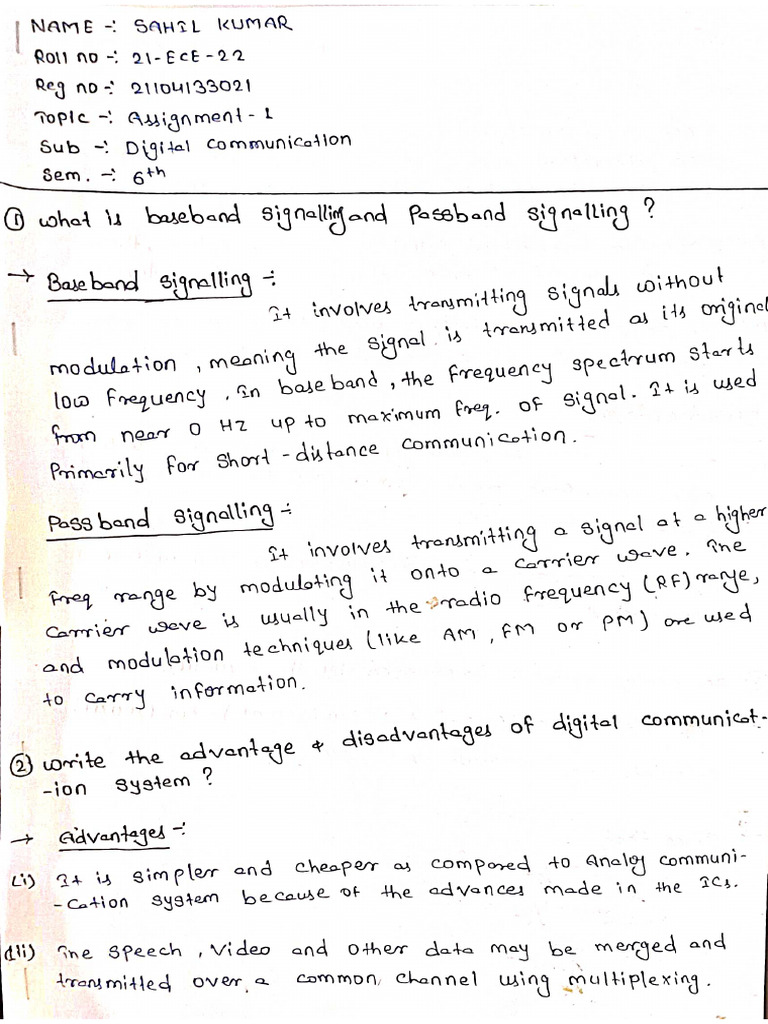 NAME -: SAHIL KUMAR
Roll no -: 21-ECE-22
Reg no -: 21104133021
Topic -: Assignment-1
Sub -: Digital Communication
Sem. -: 6th
① What is baseband signalling and Passband signalling ?
→ Baseband signalling -:
It involves transmitting signals without
modulation, meaning the signal is transmitted as its original
low frequency. In baseband, the frequency spectrum starts
from near 0 Hz up to maximum freq. of signal. It is used
Primarily for short-distance communication.
Passband signalling -:
It involves transmitting a signal at a higher
freq range by modulating it onto a carrier wave. The
carrier wave is usually in the radio frequency (RF) range,
and modulation techniques (like AM, FM or PM) are used
to carry information.
② Write the advantage & disadvantages of digital communicat-
-ion system ?
→ Advantages -:
(i) It is simpler and cheaper as compared to Analog communi-
-cation system because of the advances made in the ICs.
(ii) The speech, video and other data may be merged and
transmitted over a common channel using multiplexing.